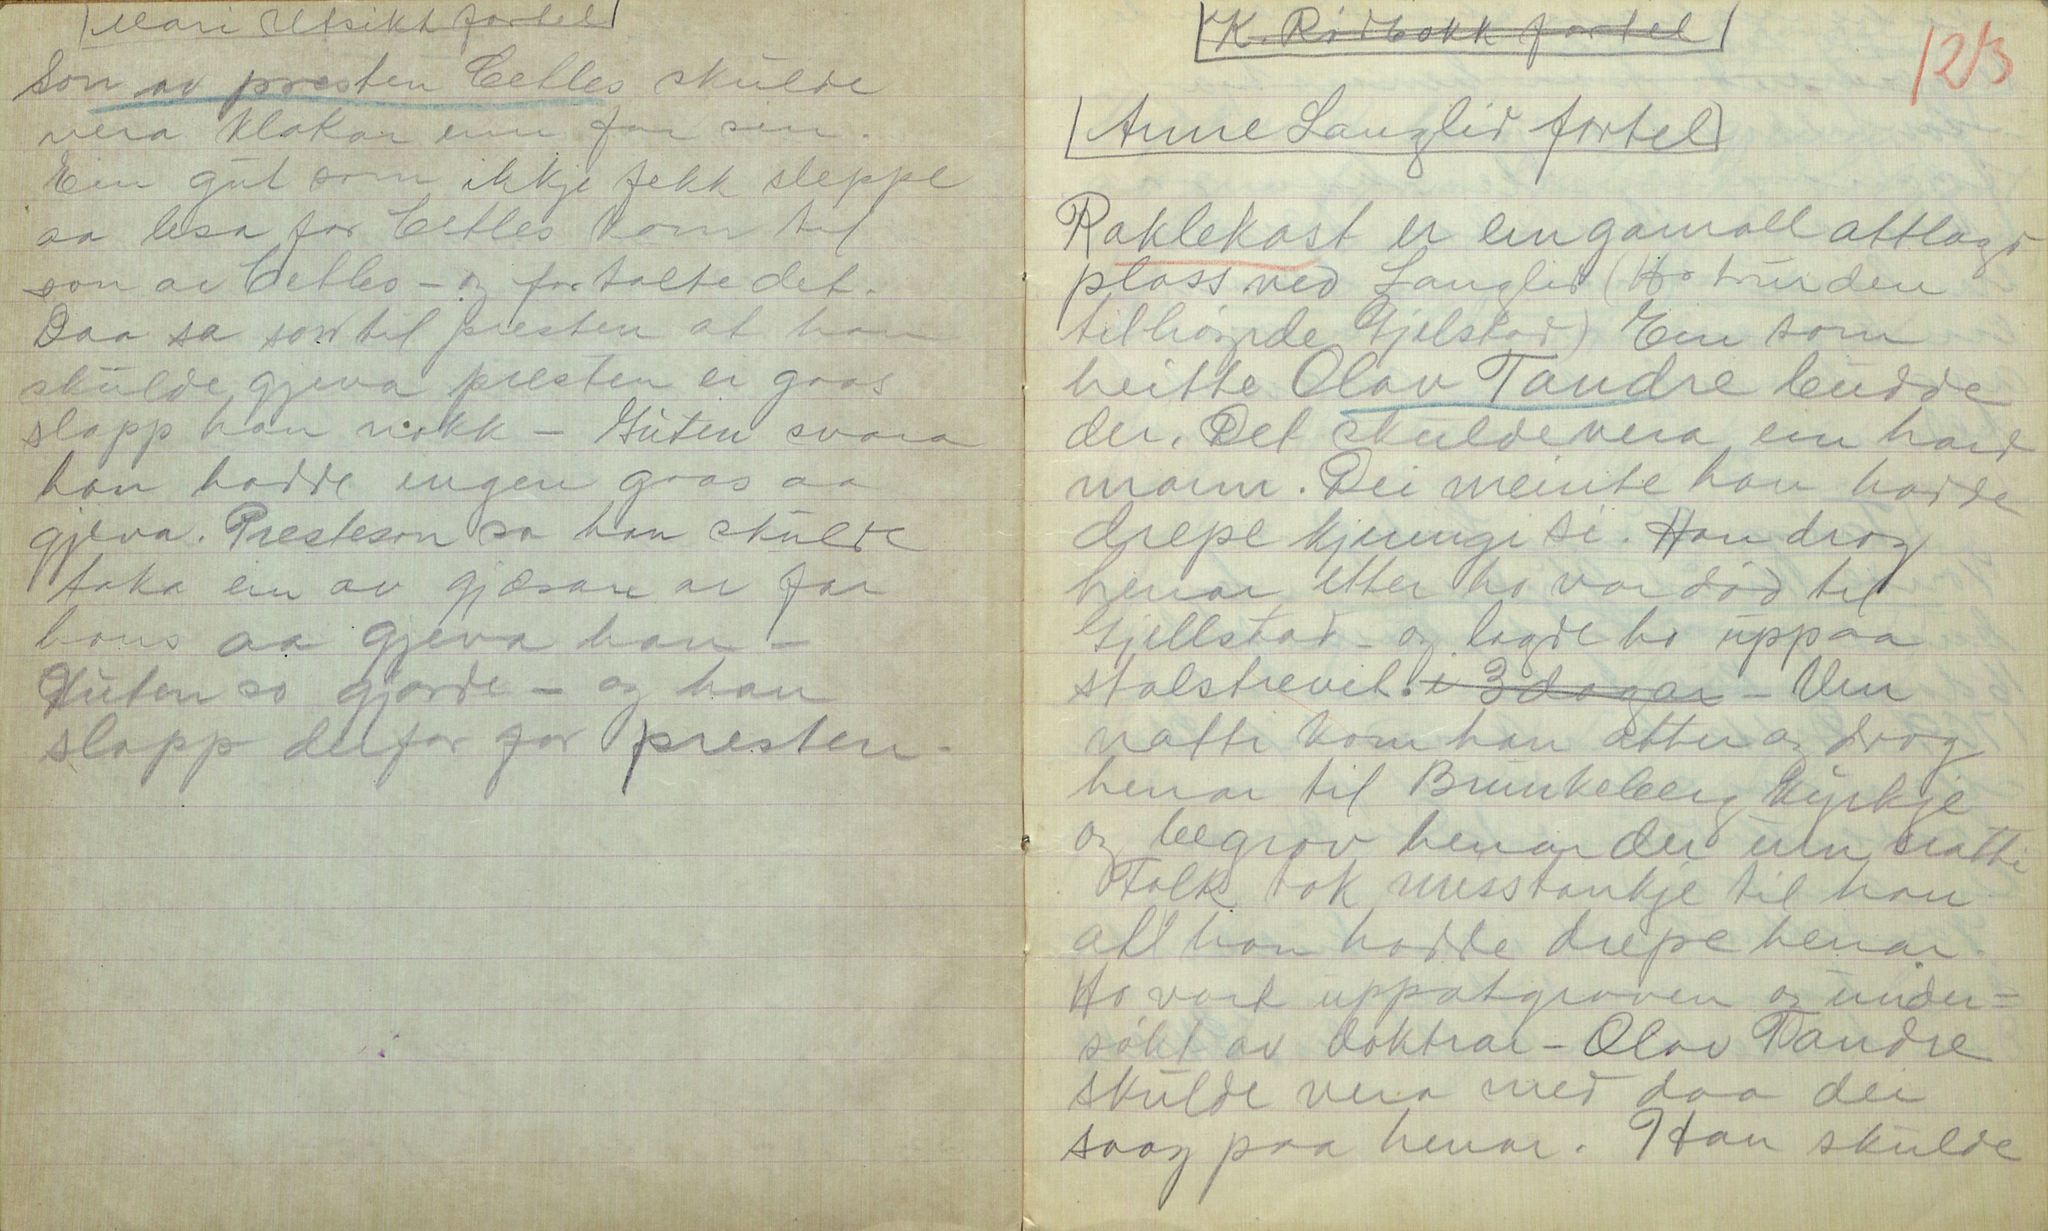 Mari Utsikt fortel
Son av presten Eetles skulde
vera klokar enn far sin.
Ein gut som ikkje fekk sleppe
aa lesa for Eetles kom til
son av Eetles – og fortalte det.
Daa sa son til presten at han
skulde gjeva presten ei gaas
slapp han nokk – Guten svara
han hadde ingen gaas aa
gjeva. Presteson sa han skulde
taka ein av gjæsane av far
hans aa gjeva han –
Guten so gjorde – og han
slapp derfor for presten.
K. Rødbokk fortel
123
Anne Langlid fortel
Raklekast er ein gamall attlagd
plass ved Langlid (Ho
tilhøyrde Gjelstad) Ein som
heitte Olav Tandre budde
der. Det skulde vera ein hard
mann. Dei meinte han hadde
drepe kjeringi si. Han drog
henar etter ho var död til
Gjellstad – og lagde ho uppaa
stalstrevit. i 3 dagar – Um
natti kom han atter og drog
henar til Brunkeberg kyrkje
og begrov henar der um natti
Folk tok misstankje til han
att han hadde drepe henar.
Ho vart uppatgraven og under=
søkt av doktrar – Olav Tandre
skulde vera med daa dei
saag paa henar. Han skulde